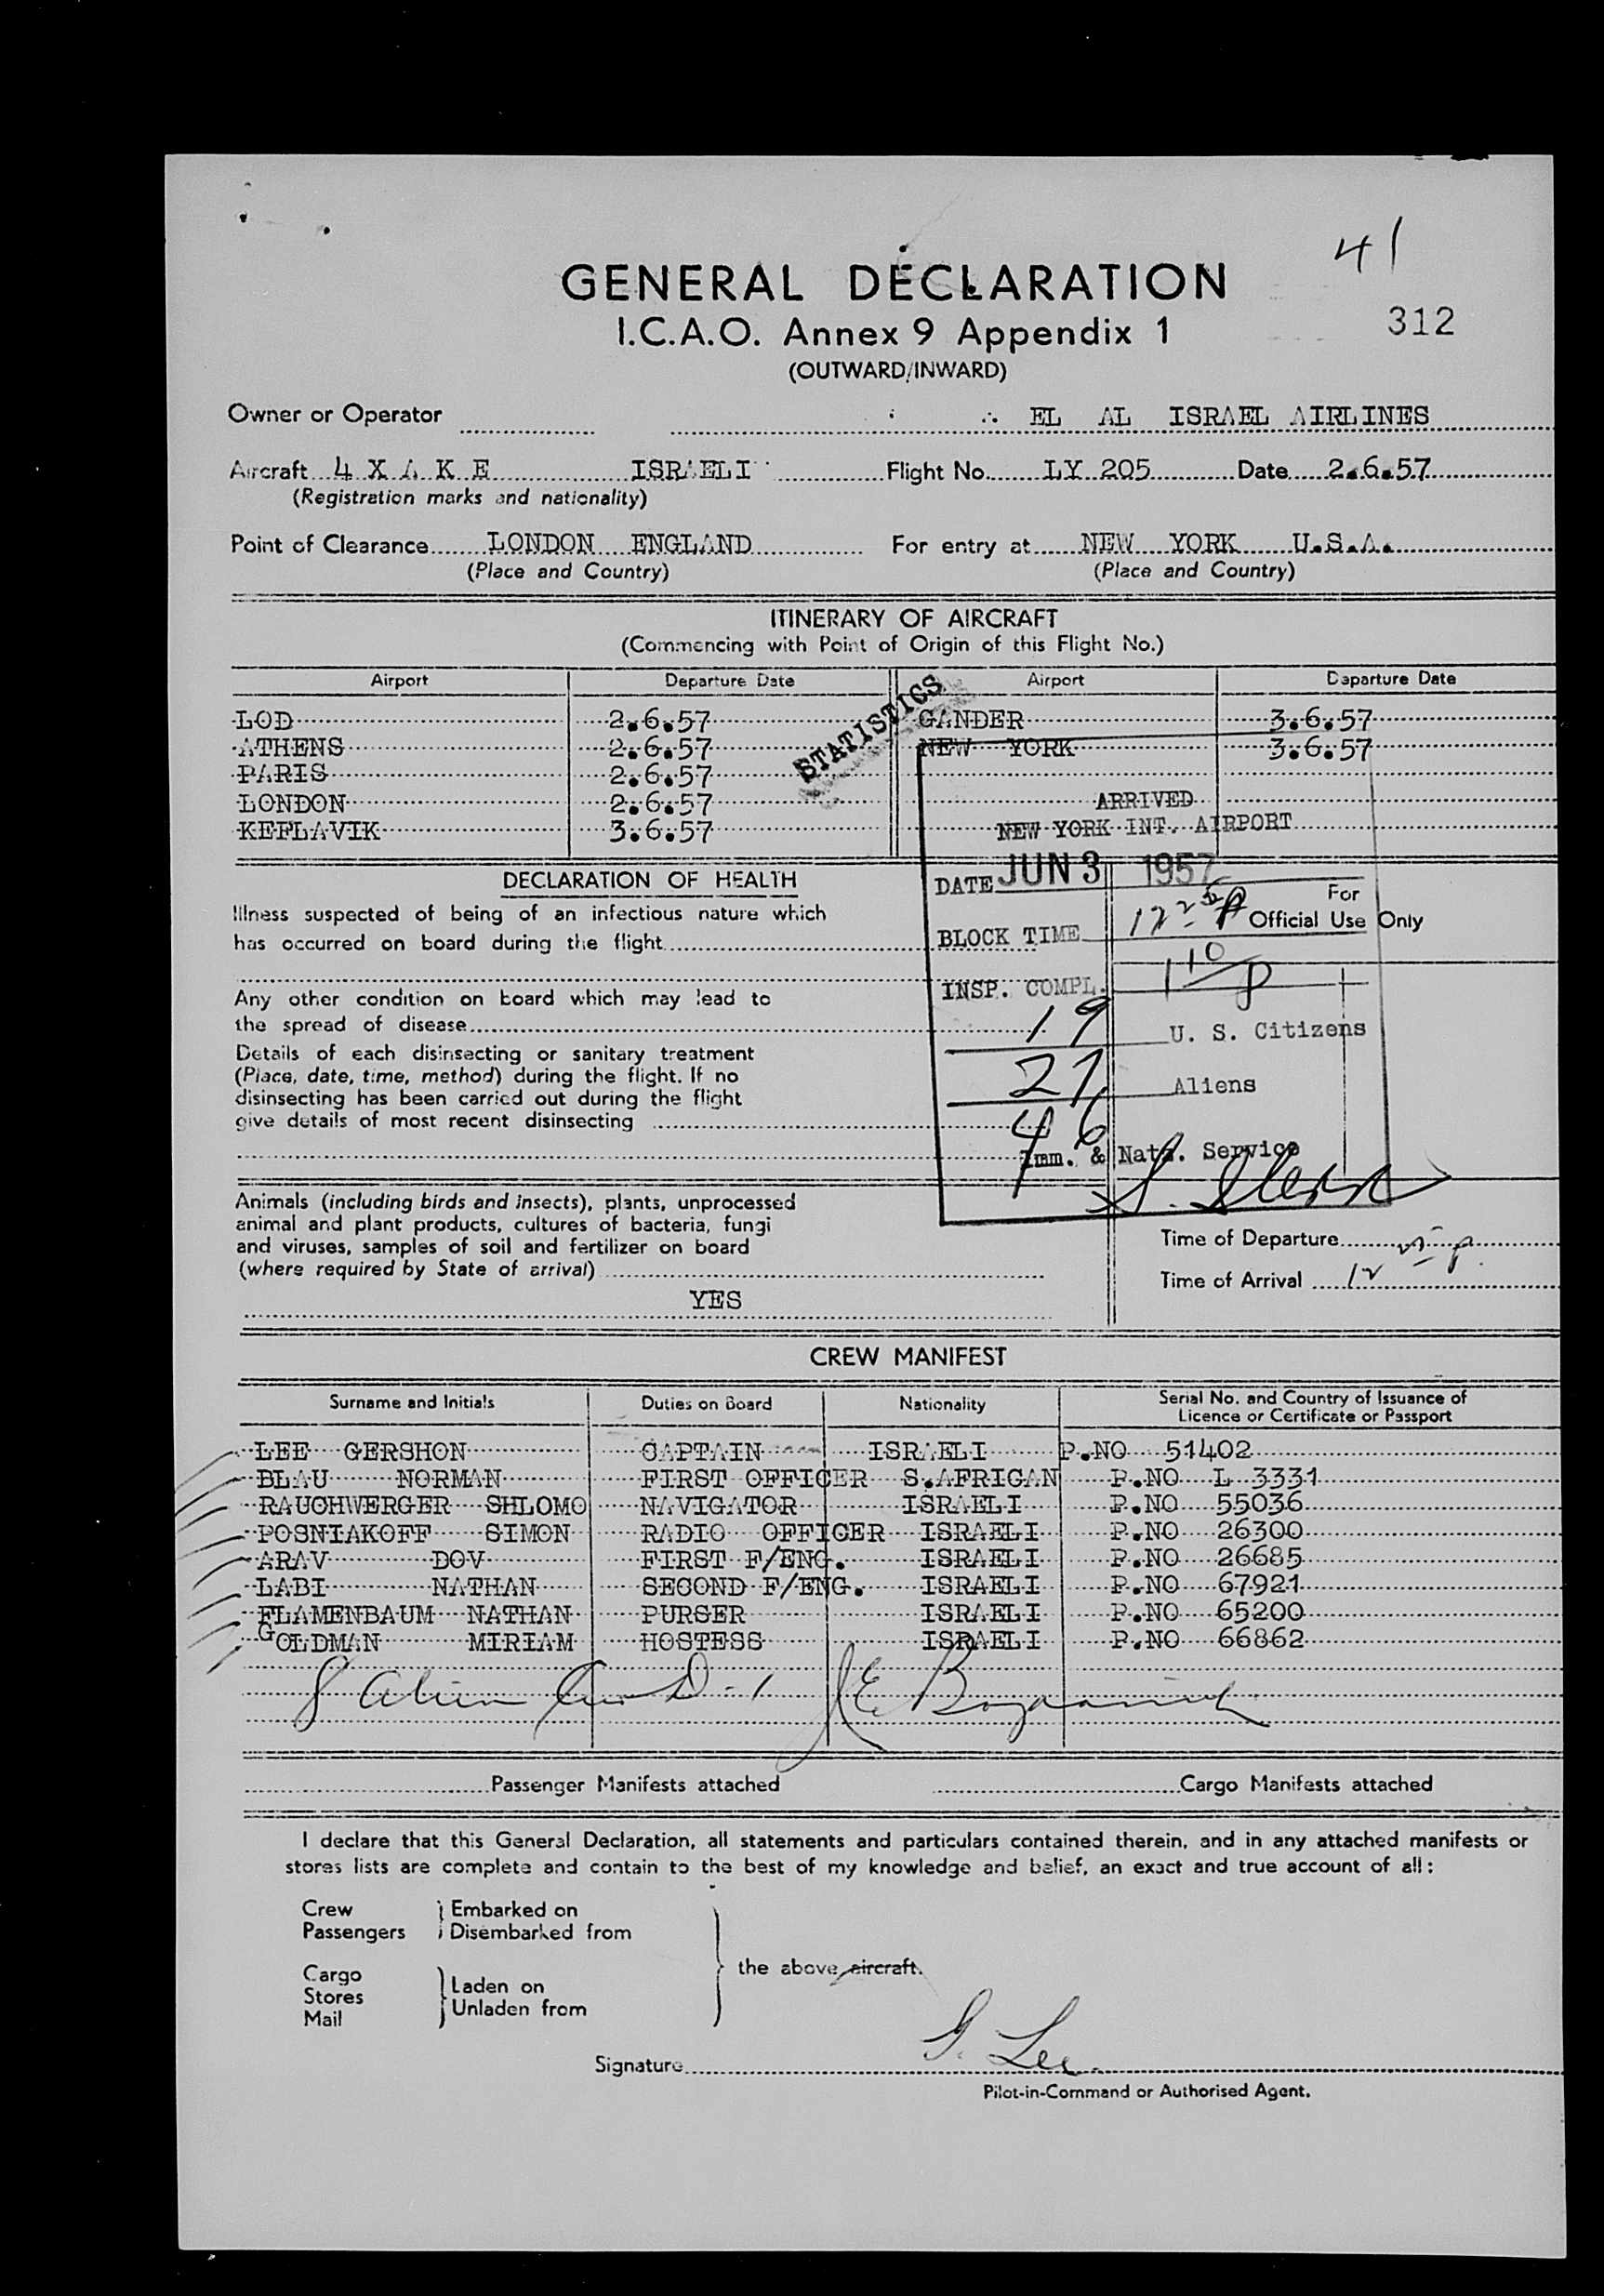 41
GENERAL DECLARATION
312
I.C.A.O. Annex 9 Appendix 1
(OUTWARD/INWARD)
Owner or Operator EL AL ISRAEL AIRLINES
Aircraft 4 X A K E ISRAELI Flight No. LY 205 Date 2.6.57
(Registration marks and nationality)
Point of Clearance LONDON ENGLAND For entry at NEW YORK U.S.A.
(Place and Country) (Place and Country)
ITINERARY OF AIRCRAFT
(Commencing with Point of Origin of this Flight No.)
Airport Departure Date Airport Departure Date
STATISTICS
LOD 2.6.57 GANDER 3.6.57
ATHENS 2.6.57 NEW YORK 3.6.57
PARIS 2.6.57
LONDON 2.6.57 ARRIVED
KEFLAVIK 3.6.57 NEW YORK INT. AIRPORT
DECLARATION OF HEALTH DATE JUN 3 1957
For
Official Use Only
Illness suspected of being of an infectious nature which
has occurred on board during the flight BLOCK TIME
INSP. COMPL.
Any other condition on board which may lead to
the spread of disease 19 U. S. Citizens
Details of each disinsecting or sanitary treatment
(Place, date, time, method) during the flight. If no 27 Aliens
disinsecting has been carried out during the flight
give details of most recent disinsecting 46
Imm. & Natz. Service
Animals (including birds and insects), plants, unprocessed
animal and plant products, cultures of bacteria, fungi
and viruses, samples of soil and fertilizer on board Time of Departure
(where required by State of arrival) Time of Arrival
YES
CREW MANIFEST
Surname and Initials Duties on Board Nationality Serial No. and Country of Issuance of
Licence or Certificate or Passport
LEE GERSHON CAPTAIN ISRAELI P.NO 51402
BLAU NORMAN FIRST OFFICER S.AFRICAN P.NO L 3331
RAUCHWERGER SHLOMO NAVIGATOR ISRAELI P.NO 55036
POSNIAKOFF SIMON RADIO OFFICER ISRAELI P.NO 26300
ARAV DOV FIRST F/ENG. ISRAELI P.NO 26685
LABI NATHAN SECOND F/ENG. ISRAELI P.NO 67921
FLAMENBAUM NATHAN PURSER ISRAELI P.NO 65200
GOLDMAN MIRIAM HOSTESS ISRAELI P.NO 66862
8 Alien D-1
Passenger Manifests attached Cargo Manifests attached
I declare that this General Declaration, all statements and particulars contained therein, and in any attached manifests or
stores lists are complete and contain to the best of my knowledge and belief, an exact and true account of all:
Crew Embarked on
Passengers Disembarked from
the above aircraft.
Cargo
Stores Laden on
Mail Unladen from
Signature G. Lee
Pilot-in-Command or Authorised Agent.